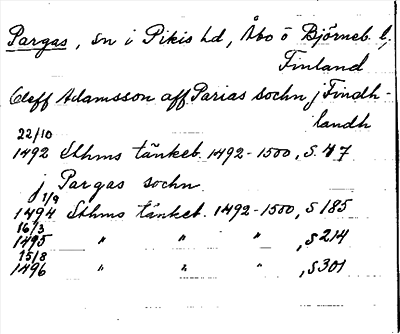 Pargas, sn i Pikis hd, Åbo o Björneb. l,
Finland
Oleff Adamsson aff Parias sochn j Findh-
landh
22/10
1492 Sthms tänkeb. 1492-1500, S. 47
j Pargas sochn
1/9
1494 Sthms tänkeb. 1492-1500, S 185
16/3
1495 " " " , S 214
15/8
1496 " " " , S 301